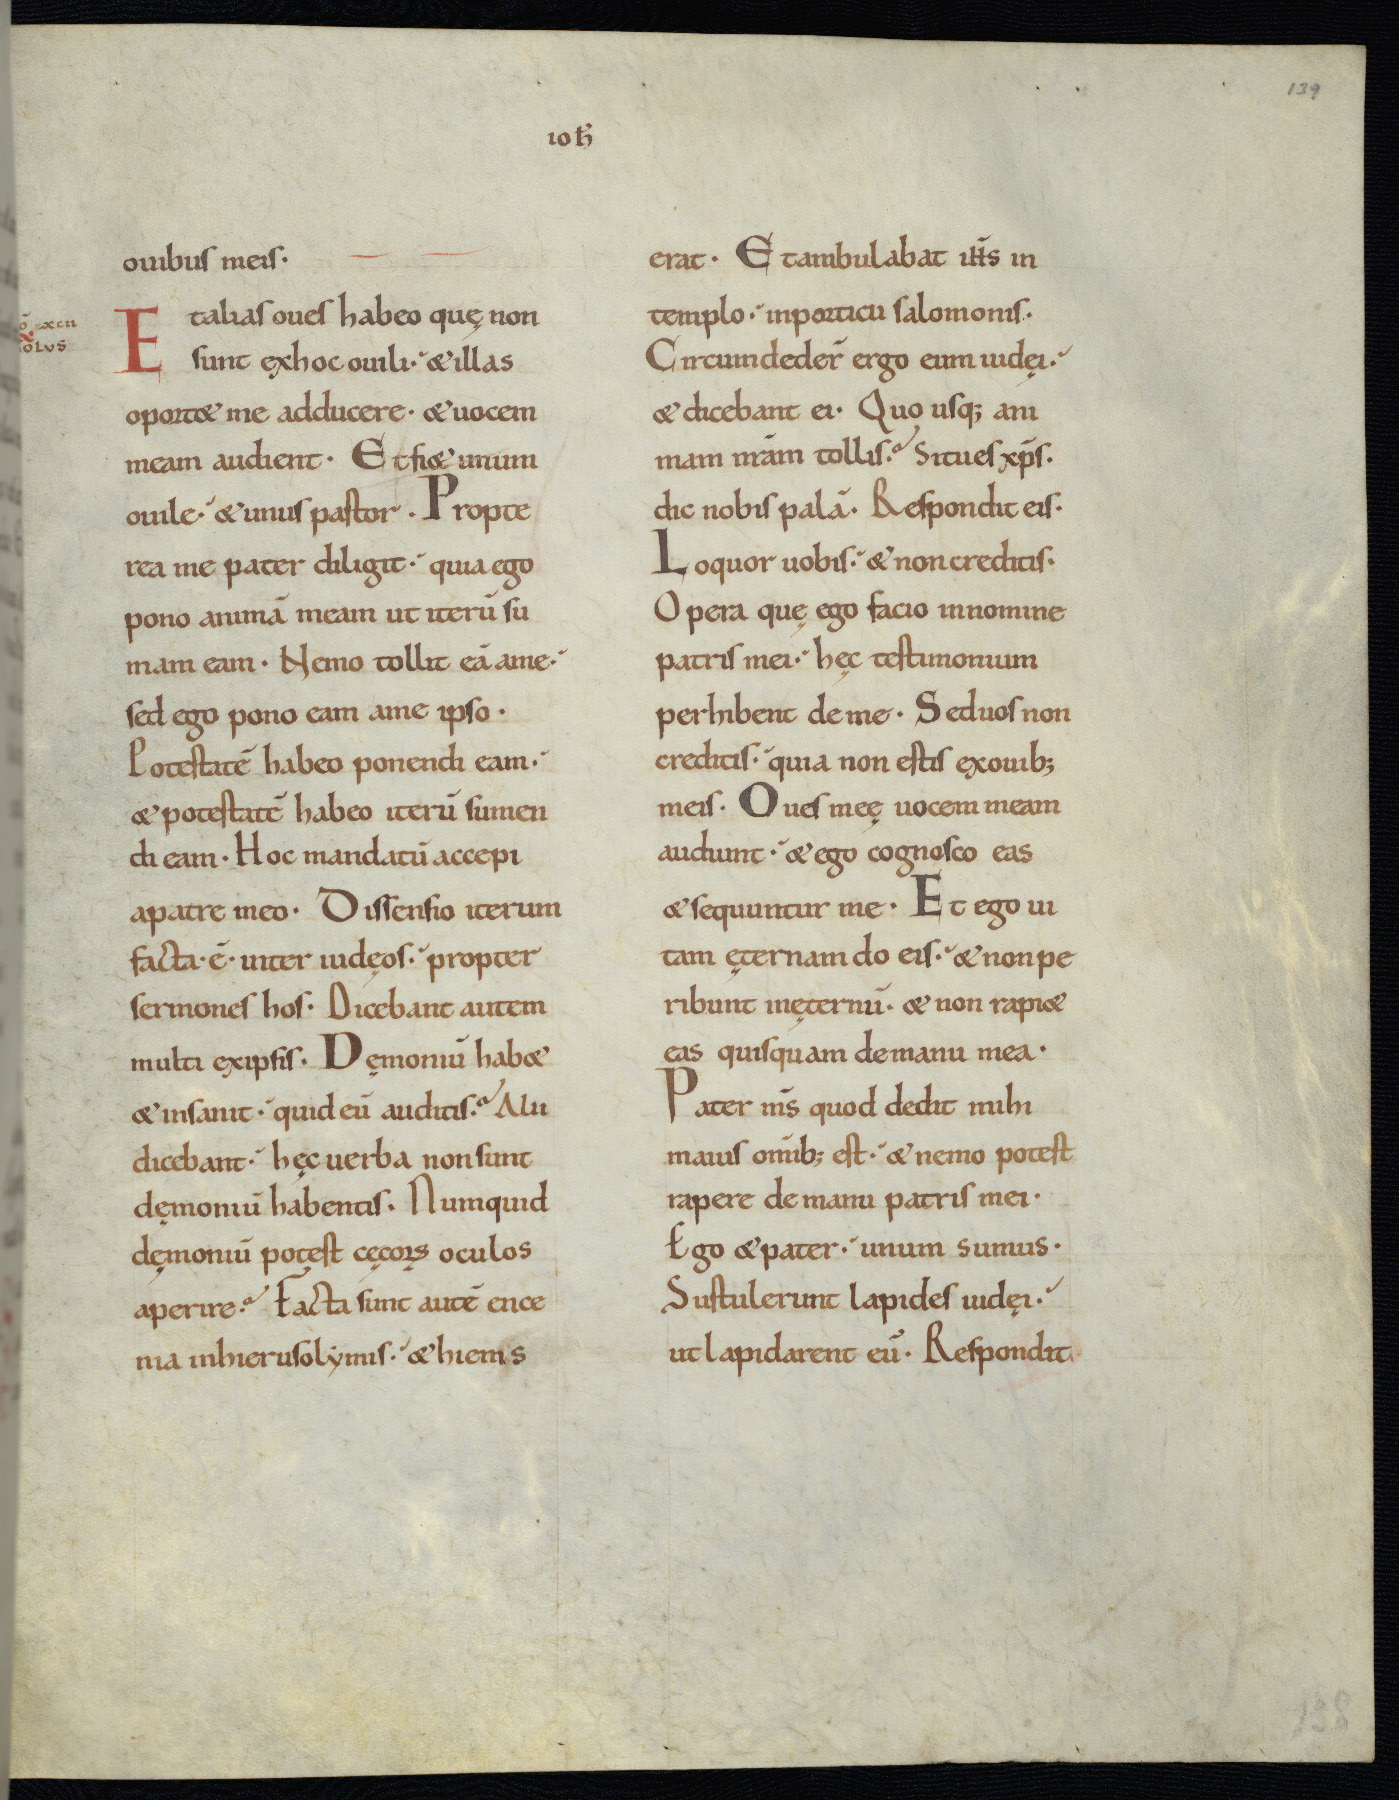 139
ioħ
ouibus meis·
Et alias oues habeo quę non
sunt ex hoc ouili· & illas
oport& me adducere· & uocem
meam audient· Et fi& unum
ouile· & unus pastor· Propte
rea me pater diligit· quia ego
pono animā meam ut iterū su
mam eam· Nemo tollit eā a me·
sed ego pono eam a me ipso·
Potestatē habeo ponendi eam·
& potestatē habeo iterū sumen
di eam· Hoc mandatū accepi
a patre meo· Dissensio iterum
facta·ē· inter iudęos· propter
sermones hos· Dicebant autem
multi ex ipsis· Dęmoniū hab&
& insanit· quid eū auditis? Alii
dicebant· hęc uerba non sunt
dęmoniū habentis· Numquid
dęmoniū potest cęcorꝝ oculos
aperire? Facta sunt autē ence
nia in hierusolymis· & hiems
erat· Et ambulabat iħs in
templo· in porticu salomonis·
Circumdeder̄ ergo eum iudęi·
& dicebant ei· Quo usq; ani
mam nr̄am tollis? Si tu es xp̄s·
dic nobis palā· Respondit eis·
Loquor uobis· & non creditis·
Opera quę ego facio in nomine
patris mei· hęc testimonium
perhibent de me· Sed uos non
creditis· quia non estis ex ouib;
meis· Oues meę uocem meam
audiunt· & ego cognosco eas
& sequuntur me· Et ego ui
tam ęternam do eis· & non pe
ribunt in ęternū· & non rapi&
eas quisquam de manu mea·
Pater m̄s quod dedit mihi
maius om̄ib; est· & nemo potest
rapere de manu patris mei·
Ego & pater· unum sumus·
Sustulerunt lapides iudęi·
ut lapidarent eū· Respondit
138